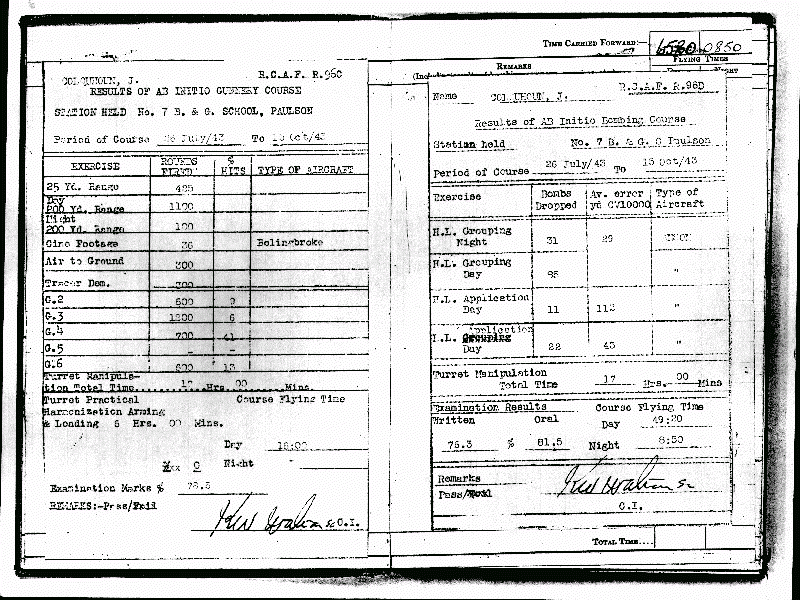 TIME CARRIED FORWARD:— 0850
FLYING TIMES
REMARKS
COLQUHOUN, J. R.C.A.F. R.96C
RESULTS OF AB INITIO GUNNERY COURSE
STATION HELD No. 7 B. & G. SCHOOL, PAULSON
Period of Course 26 July/43 To 15 Oct/43
EXERCISE ROUNDS FIRED % HITS TYPE OF AIRCRAFT
25 Yd. Range 425
Day
200 Yd. Range 1100
Night
200 Yd. Range 100
Cine Footage 36 Bolingbroke
Air to Ground 300
Tracer Dem. 300
G.2 600
G.3 1200 6
G.4 700 41
G.5 - -
G.6 600 13
Turret Manipula-
tion Total Time Hrs. 00 Mins.
Turret Practical Course Flying Time
Harmonization Arming
& Loading 6 Hrs. 00 Mins.
Day 18:00
0 Night
Examination Marks % 78.5
REMARKS:-Pass/Fail
C.I.
Name COLQUHOUN, J. R.C.A.F. R.96D
Results of AB Initio Bombing Course
Station held No. 7 B. & G. S Paulson
Period of Course 26 July/43 To 15 Oct/43
Exercise Bombs Dropped Av. error yd CV10000 Type of Aircraft
H.L. Grouping
Night 31 29
H.L. Grouping
Day 95 "
H.L. Application
Day 11 112 "
Application
L.L. Grouping
Day 22 43 "
Turret Manipulation
Total Time 17 Hrs. 00 Mins
Examination Results Course Flying Time
Written Oral Day 49:20
76.3 % 81.5 Night 8:50
Remarks
Pass/Fail
C.I.
TOTAL TIME....